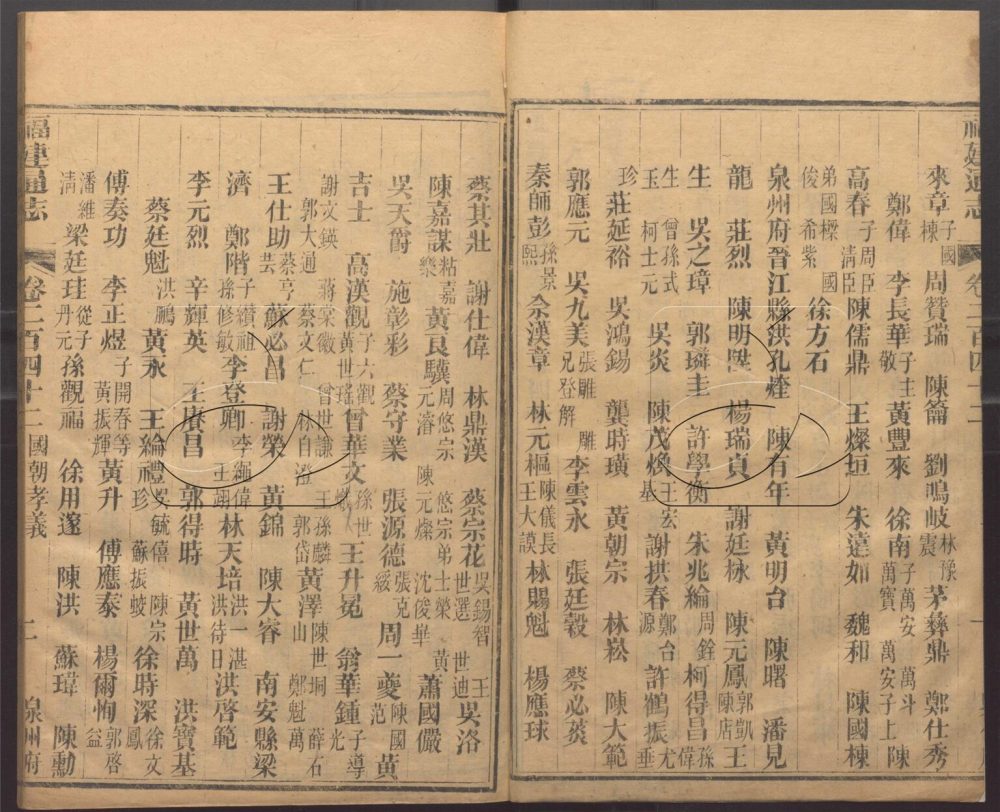 福建通志 卷二百四十二
來章子國棟 周贊瑞 陳籥 劉鳴岐林豫震 茅彝鼎 鄭仕秀
鄭偉 李長華子主敬 黃豐來 徐南子萬安萬斗萬寶萬安子上陳
高春子周臣淸臣 陳儒鼎 王燦垣 朱遠如 魏和 陳國棟
弟國樑國俊希紫 徐方石
泉州府晉江縣洪孔煃 陳有年 黃明台 陳曙 潘見
龍 莊烈 陳明陞 楊瑞貞 謝廷栐 陳元鳳郭凱王陳店
生 吳之璋 郭璘圭 許學衡 朱兆綸周銓 柯得昌孫偉
生曾孫式尤玉柯士元 吳炎 陳茂煥王宏基 謝拱春鄭台源 許鶴振垂
珍 莊延裕 吳鴻錫 龔時璜 黃朝宗 林崧 陳大範
郭應元 吳九美張雕兄登解雕 李雲永 張廷穀 蔡必葵
秦師彭孫景熙 佘漢章 林元樞陳儀長王大謨 林賜魁 楊應球
蔡其壯 謝仕偉 林鼎漢 蔡宗花吳錫智世選王世迪 吳洛
陳嘉謀粘嘉樂 黃良驥周悠宗悠宗弟士榮元濬陳元燦沈俊華黃 蕭國儼
吳天爵 施彰彩 蔡守業 張源德張克綏 周一夔陳國范 黃
吉士 高漢觀子六觀黃世瑤 曾華文孫世 王升冕 翁華鍾子導光
謝文鍈 蔣棠徽 曾世謙 王孫麟 郭大通 蔡文仁 林自澄 郭岱 黃澤陳世垌薛石山鄭魁萬
王仕助蔡亨芸 蘇必昌 謝榮 黃錦 陳大睿 南安縣梁
濟 鄭階子纘祖孫修敏 李登卿李繩偉王翊 林天培洪一湛洪待日 洪啓範
李元烈 辛輝英 王賡昌 郭得時 黃世萬 洪寶基
蔡廷魁洪鵬 黃永 王綸禮吳毓僖陳宗珍蘇振蛟 徐時深徐文鳳
傅奏功 李正煜子開春等黃振輝 黃升 傅應泰 楊爾恂郭啓益
潘維淸 梁廷珪從子丹元 孫觀福 徐用邃 陳洪 蘇瑋 陳勳
福建通志 卷二百四十二 國朝孝義 二 泉州府